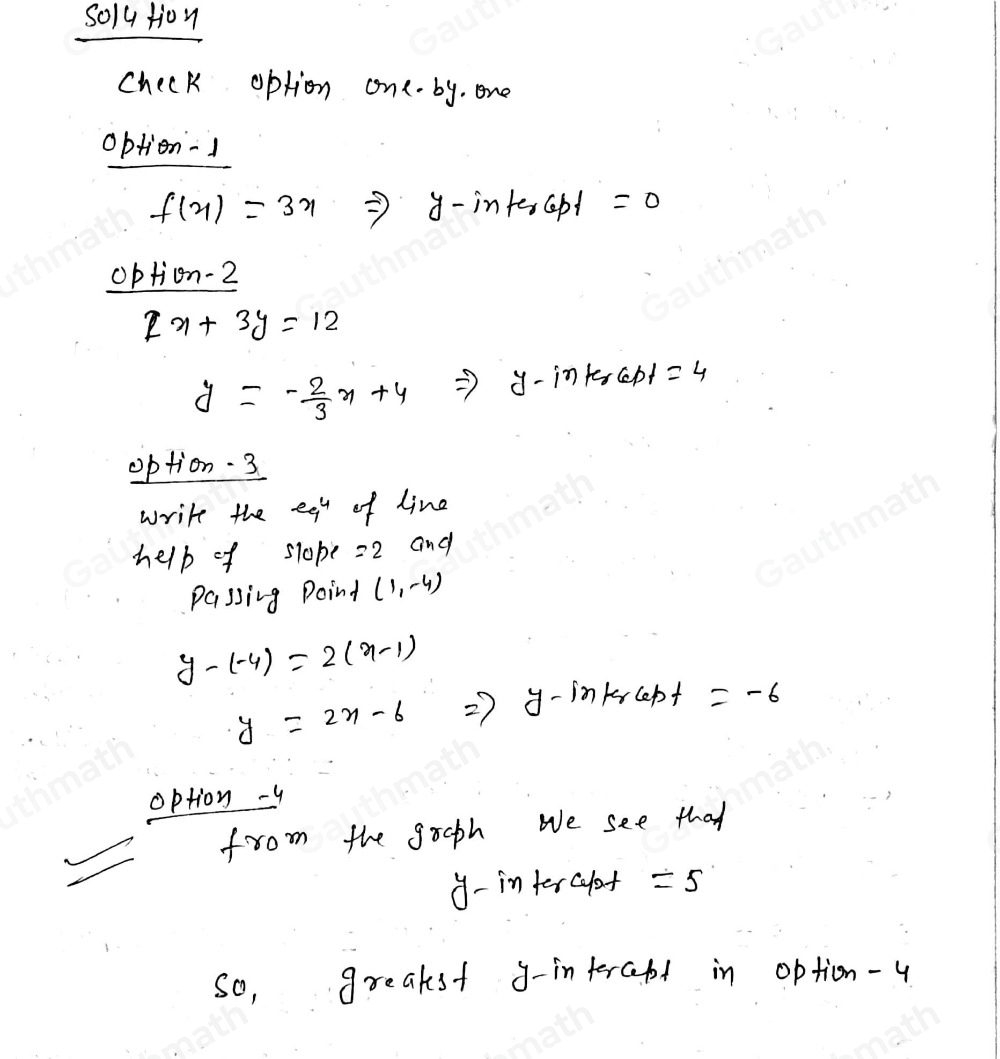 Solution
Check option one-by-one
Option-1
f(x) = 3x ⇒ y-intercept = 0
Option-2
2x + 3y = 12
y = -2/3 x + 4 ⇒ y-intercept = 4
Option-3
Write the eqn of line
help of slope = 2 and
Passing Point (1,-4)
y-(-4) = 2(x-1)
y = 2x-6 ⇒ y-intercept = -6
Option-4
from the graph We see that
y-intercept = 5
So, greatest y-intercept in option-4
Gauthmath